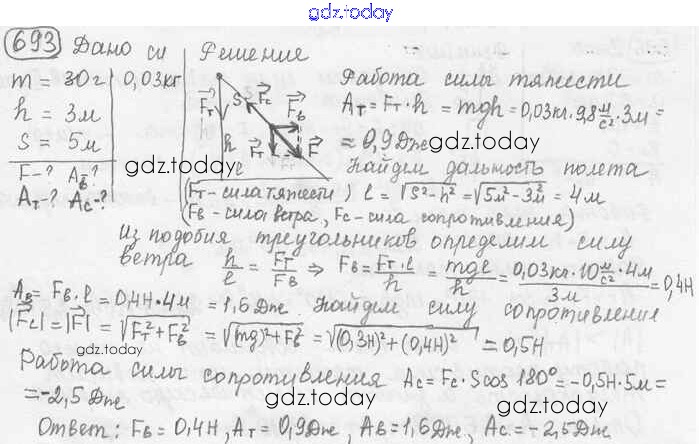 gdz.today
693 Дано си Решение
m = 30г 0,03кг
h = 3м
S = 5м
F-? Aв-?
Aт-? Ac-?
Fт S Fc Fв
h Fт F
l
Работа силы тяжести
Aт = Fт·h = mgh = 0,03кг·9,8 м/с²·3м =
= 0,9Дж
gdz.today
gdz.today
Найдём дальность полета
(Fт - сила тяжести) l = √S²-h² = √5м²-3м² = 4м
(Fв - сила ветра, Fc - сила сопротивления)
Из подобия треугольников определим силу
ветра h/l = Fт/Fв ⇒ Fв = Fт·l/h = mgl/h = 0,03кг·10 м/с²·4м/3м = 0,4Н
gdz.today
gdz.today
Aв = Fв·l = 0,4Н·4м = 1,6Дж. Найдём силу сопротивления
|Fc| = |F| = √Fт²+Fв² = √(mg)²+Fв² = √(0,3Н)²+(0,4Н)² = 0,5Н
gdz.today
gdz.today
Работа силы сопротивления Ac = Fc·S cos 180° = -0,5Н·5м =
= -2,5Дж
gdz.today
gdz.today
Ответ: Fв = 0,4Н, Aт = 0,9Дж, Aв = 1,6Дж, Ac = -2,5Дж
gdz.today